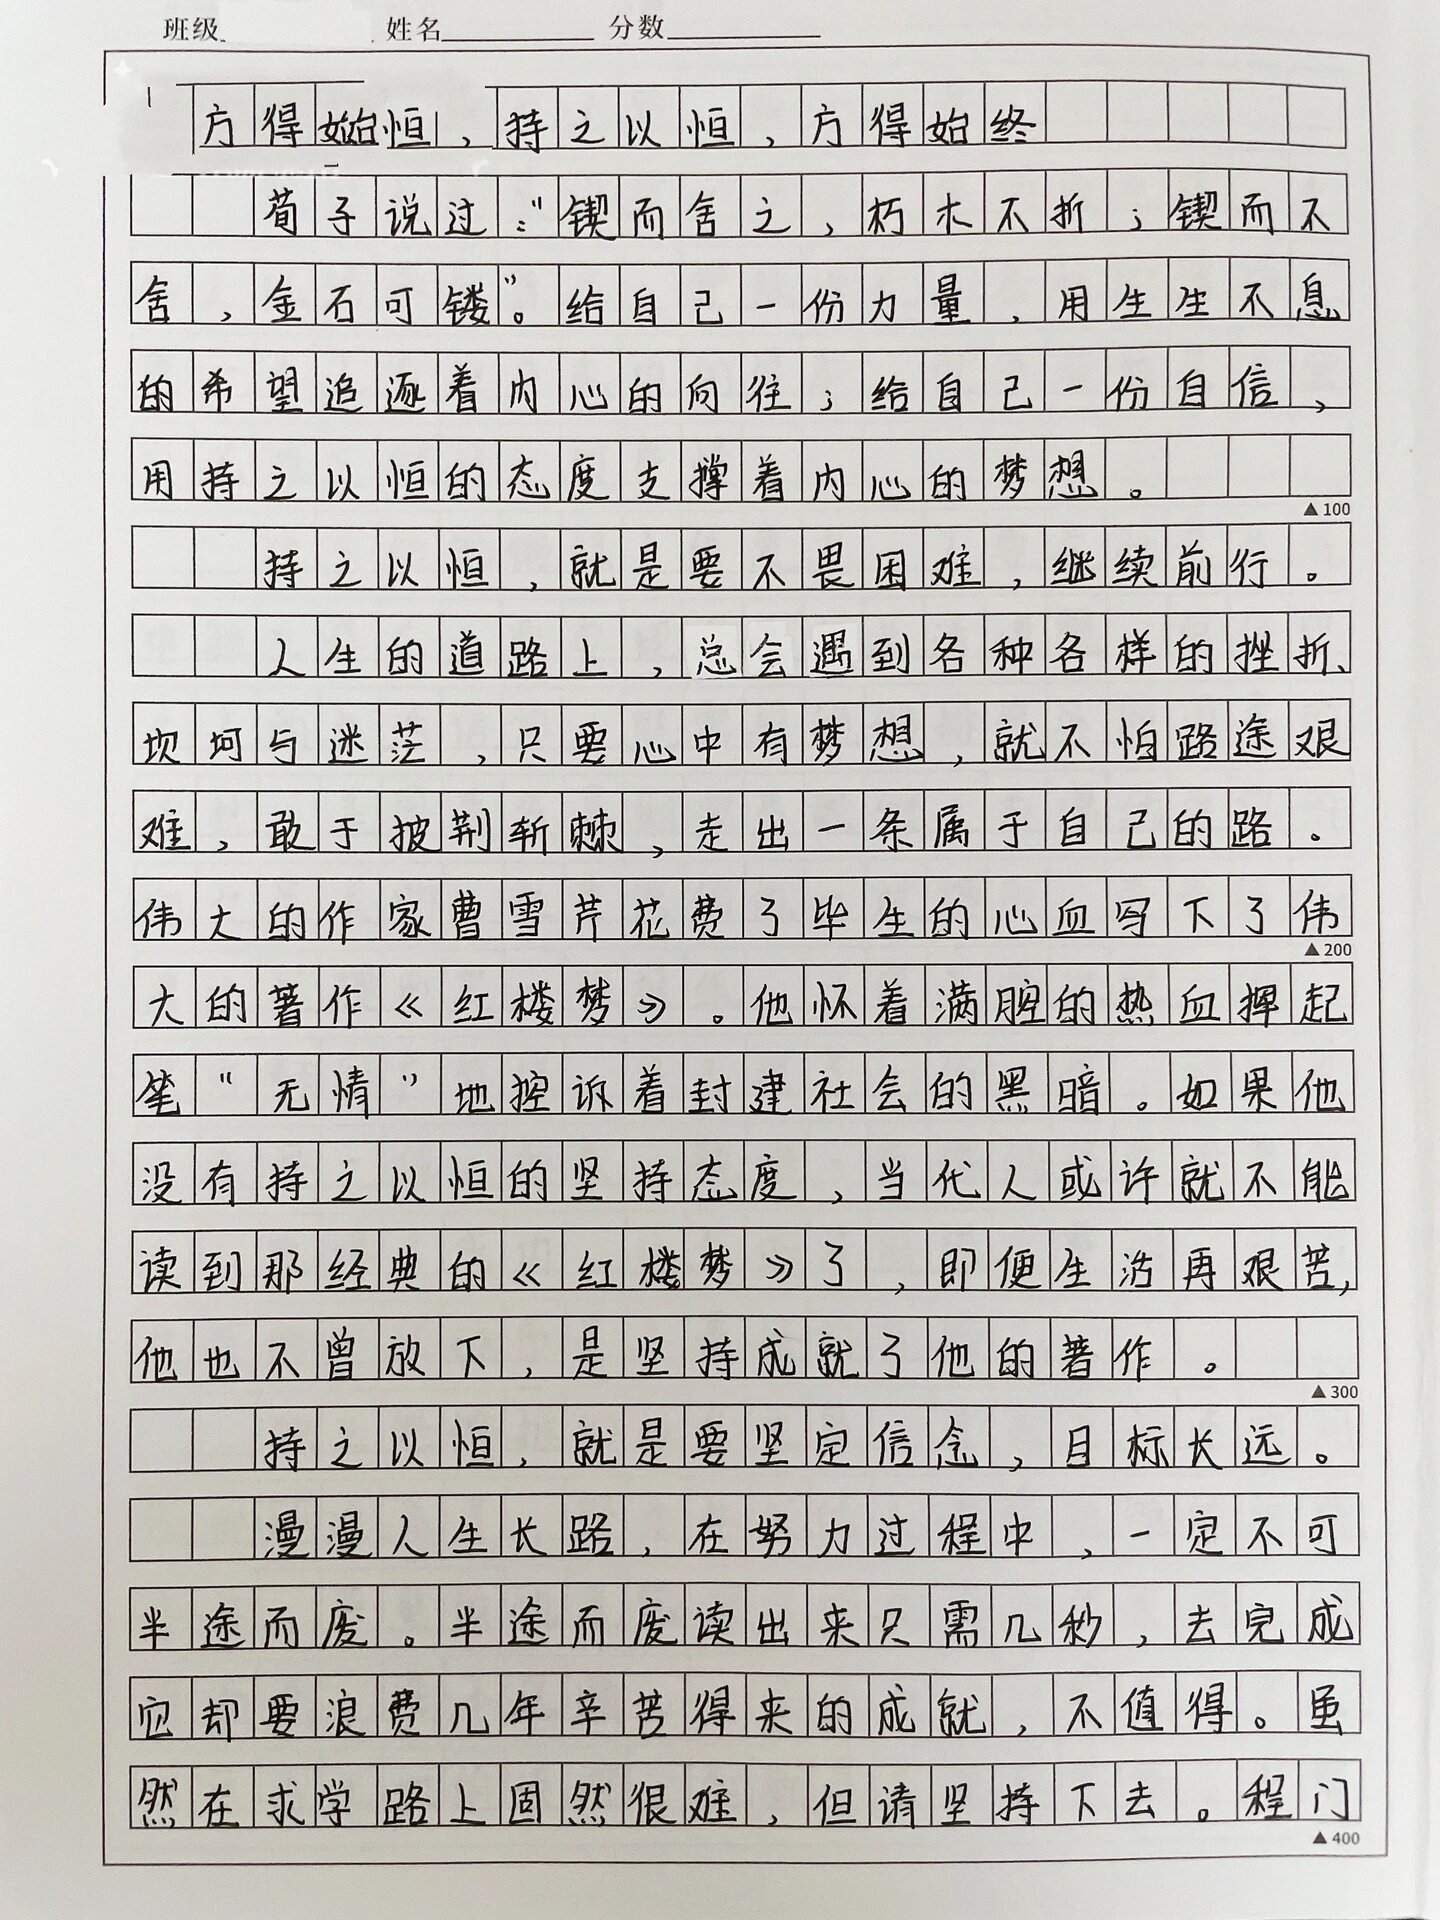 班级 姓名 分数
方得始恒，持之以恒，方得始终
荀子说过：“锲而舍之，朽木不折；锲而不
舍，金石可镂”。给自己一份力量，用生生不息
的希望追逐着内心的向往；给自己一份自信，
用持之以恒的态度支撑着内心的梦想。
▲100
持之以恒，就是要不畏困难，继续前行。
人生的道路上，总会遇到各种各样的挫折、
坎坷与迷茫，只要心中有梦想，就不怕路途艰
难，敢于披荆斩棘，走出一条属于自己的路。
伟大的作家曹雪芹花费了毕生的心血写下了伟
▲200
大的著作《红楼梦》。他怀着满腔的热血挥起
笔“无情”地控诉着封建社会的黑暗。如果他
没有持之以恒的坚持态度，当代人或许就不能
读到那经典的《红楼梦》了，即便生活再艰苦，
他也不曾放下，是坚持成就了他的著作。
▲300
持之以恒，就是要坚定信念，目标长远。
漫漫人生长路，在努力过程中，一定不可
半途而废。半途而废读出来只需几秒，去完成
它却要浪费几年辛苦得来的成就，不值得。虽
然在求学路上固然很难，但请坚持下去。程门
▲400